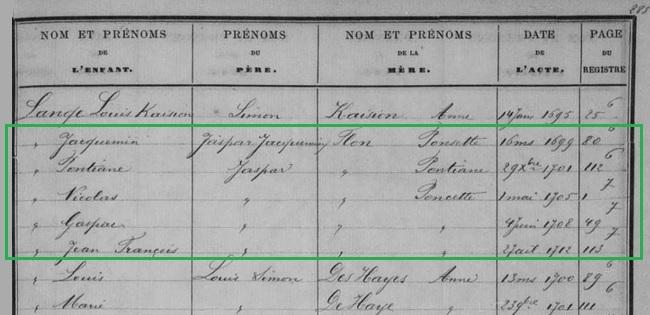 285
NOM ET PRÉNOMS DE L'ENFANT. PRÉNOMS DU PÈRE. NOM ET PRÉNOMS DE LA MÈRE. DATE DE L'ACTE. PAGE DU REGISTRE
Lange Louis Kaision Simon Kaision Anne 14 Janv 1695 25 6
" Jacquemin Jaspar Jacquemin Ron Ponsette 16 ms 1699 80 6
" Pontiane Jaspar " Pontiane 29 Xbre 1701 112 6
" Nicolas " " Poncette 1 mai 1705 1 7
" Gaspar " " " 4 juin 1708 49 7
" Jean François " " " 27 aït 1712 113 7
" Louis Louis Simon Des Hayes Anne 13 ms 1700 89 6
" Marie " De Haye " 23 9bre 1701 111 6